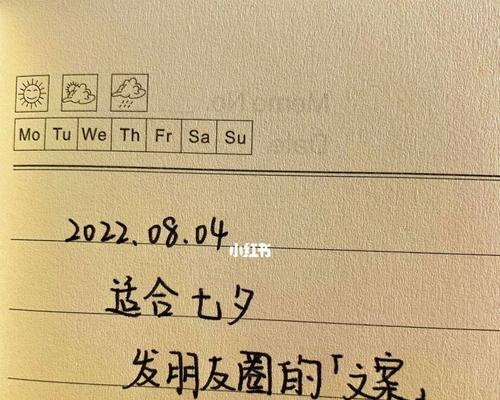 Mo Tu We Th Fr Sa Su
2022.08.04
小红书
适合七夕
发朋友圈的「文案」